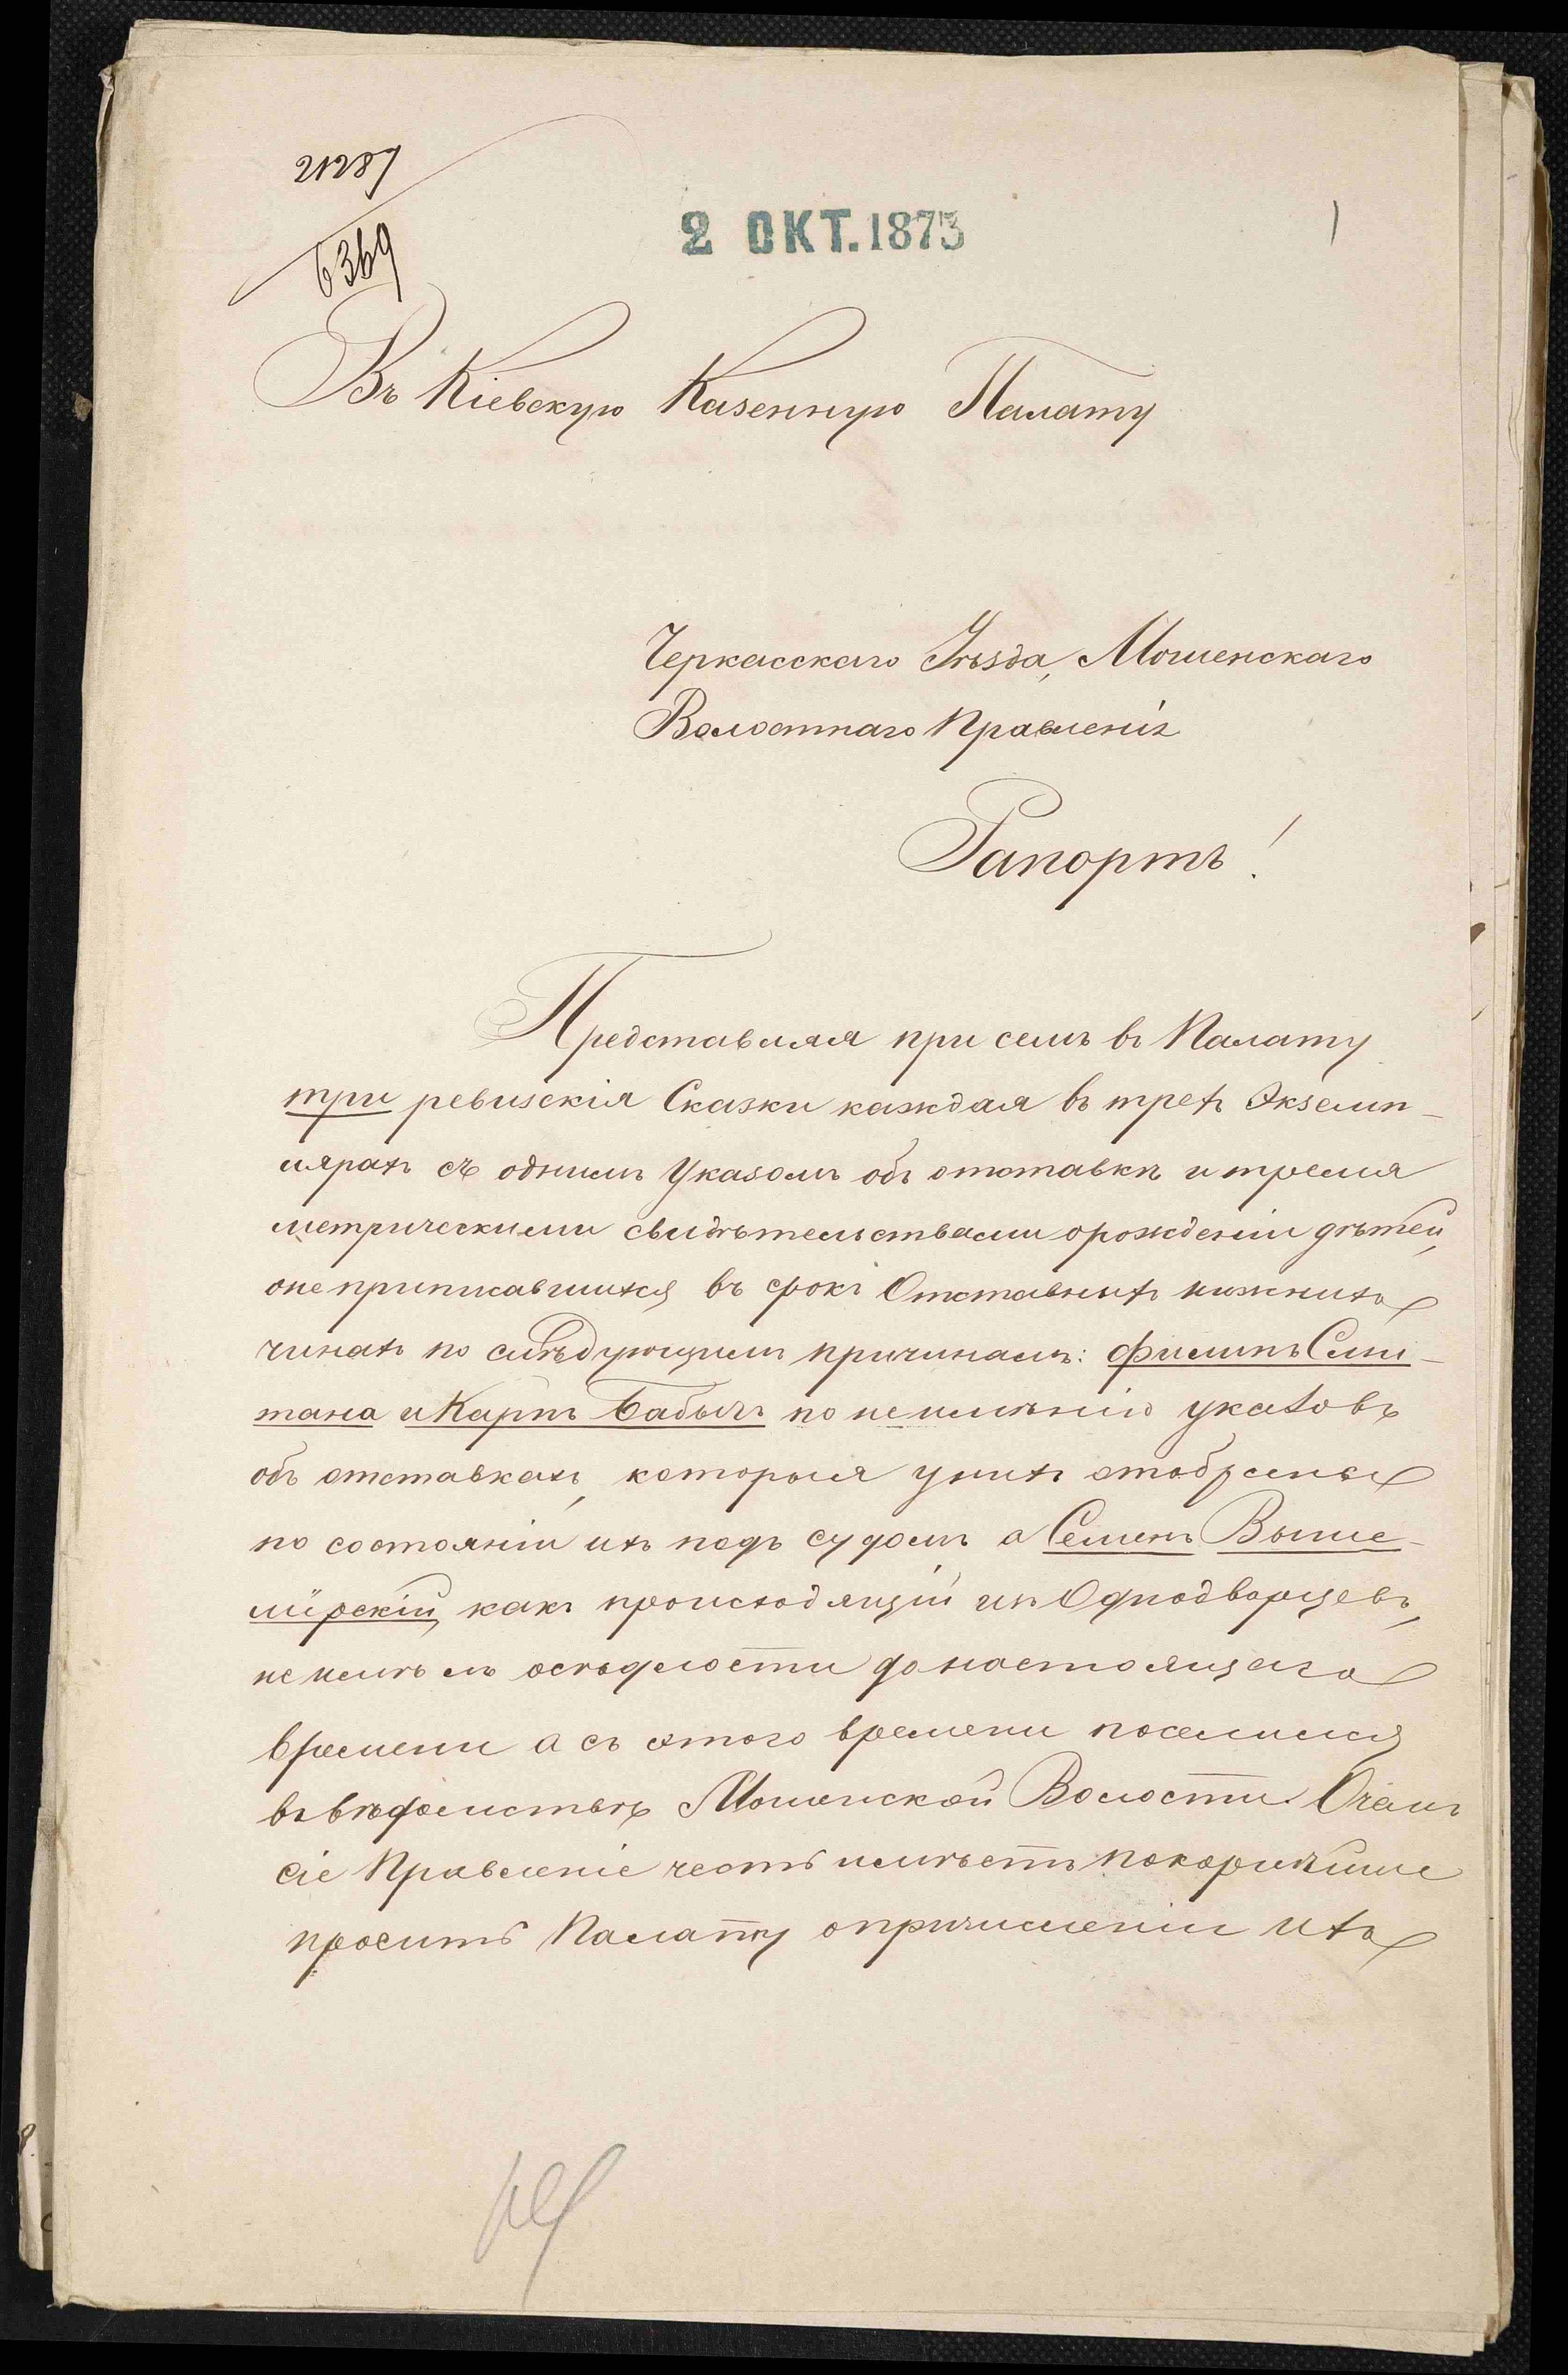 21287
6369
2 ОКТ. 1873
1
Въ Кіевскую Казенную Палату
Черкасскаго Уѣзда, Мошенскаго
Волостнаго Правленія
Рапортъ!
Представляя при семъ въ Палату
три ревизскія Сказки каждая въ трехъ Экземп-
лярахъ съ однимъ Указомъ объ отставкѣ и тремя
метрическими свидѣтельствами о рожденіи дѣтей,
о не приписавшихся въ срокъ Отставныхъ нижнихъ
чинахъ по слѣдующимъ причинамъ: Филипъ Сми-
тана и Карпъ Бабычъ по неимѣнію указовъ
объ отставкахъ, которыя у нихъ отобраны
по состояніи ихъ подъ судомъ а Семенъ Выше-
мірскій, какъ происходящій изъ Однодворцевъ,
не имѣлъ осѣдлости до настоящаго
времени а съ этого времени поселился
въ вѣдомствѣ Мошенской Волости. О чемъ
сіе Правленіе честь имѣетъ покорнѣйше
просить Палату о причисленіи ихъ